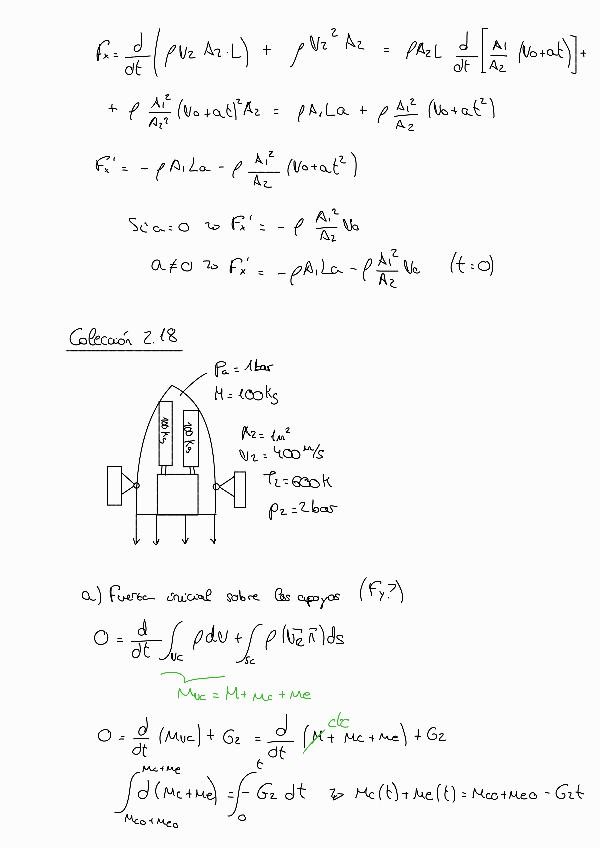 Fx = d/dt (ρ V2 A2·L) + ρ V2² A2 = ρA2L d/dt [A1/A2 (V0+at)] +
+ ρ A1²/A2² (V0+at)² A2 = ρA1La + ρ A1²/A2 (V0+at²)
Fx' = - ρA1La - ρ A1²/A2 (V0+at²)
Si a=0 ⇝ Fx' = - ρ A1²/A2 V0
a≠0 ⇝ Fx' = - ρA1La - ρ A1²/A2 V0 (t=0)
Colección 2.18
Pa = 1bar
M = 100Kg
100 Kg
100 Kg
A2 = 1m²
V2 = 400 m/s
T2 = 600K
P2 = 2bar
a) Fuerza inicial sobre los apoyos (Fy?)
0 = d/dt ∫vc ρdv + ∫sc ρ(V̄2 n̄)ds
Mvc = M + mc + me
0 = d/dt (Mvc) + G2 = d/dt (M + mc + me) + G2
cte
∫_{mco+meo}^{mc+me} d(mc+me) = ∫_0^t - G2 dt ⇝ mc(t) + me(t) = mco + meo - G2t